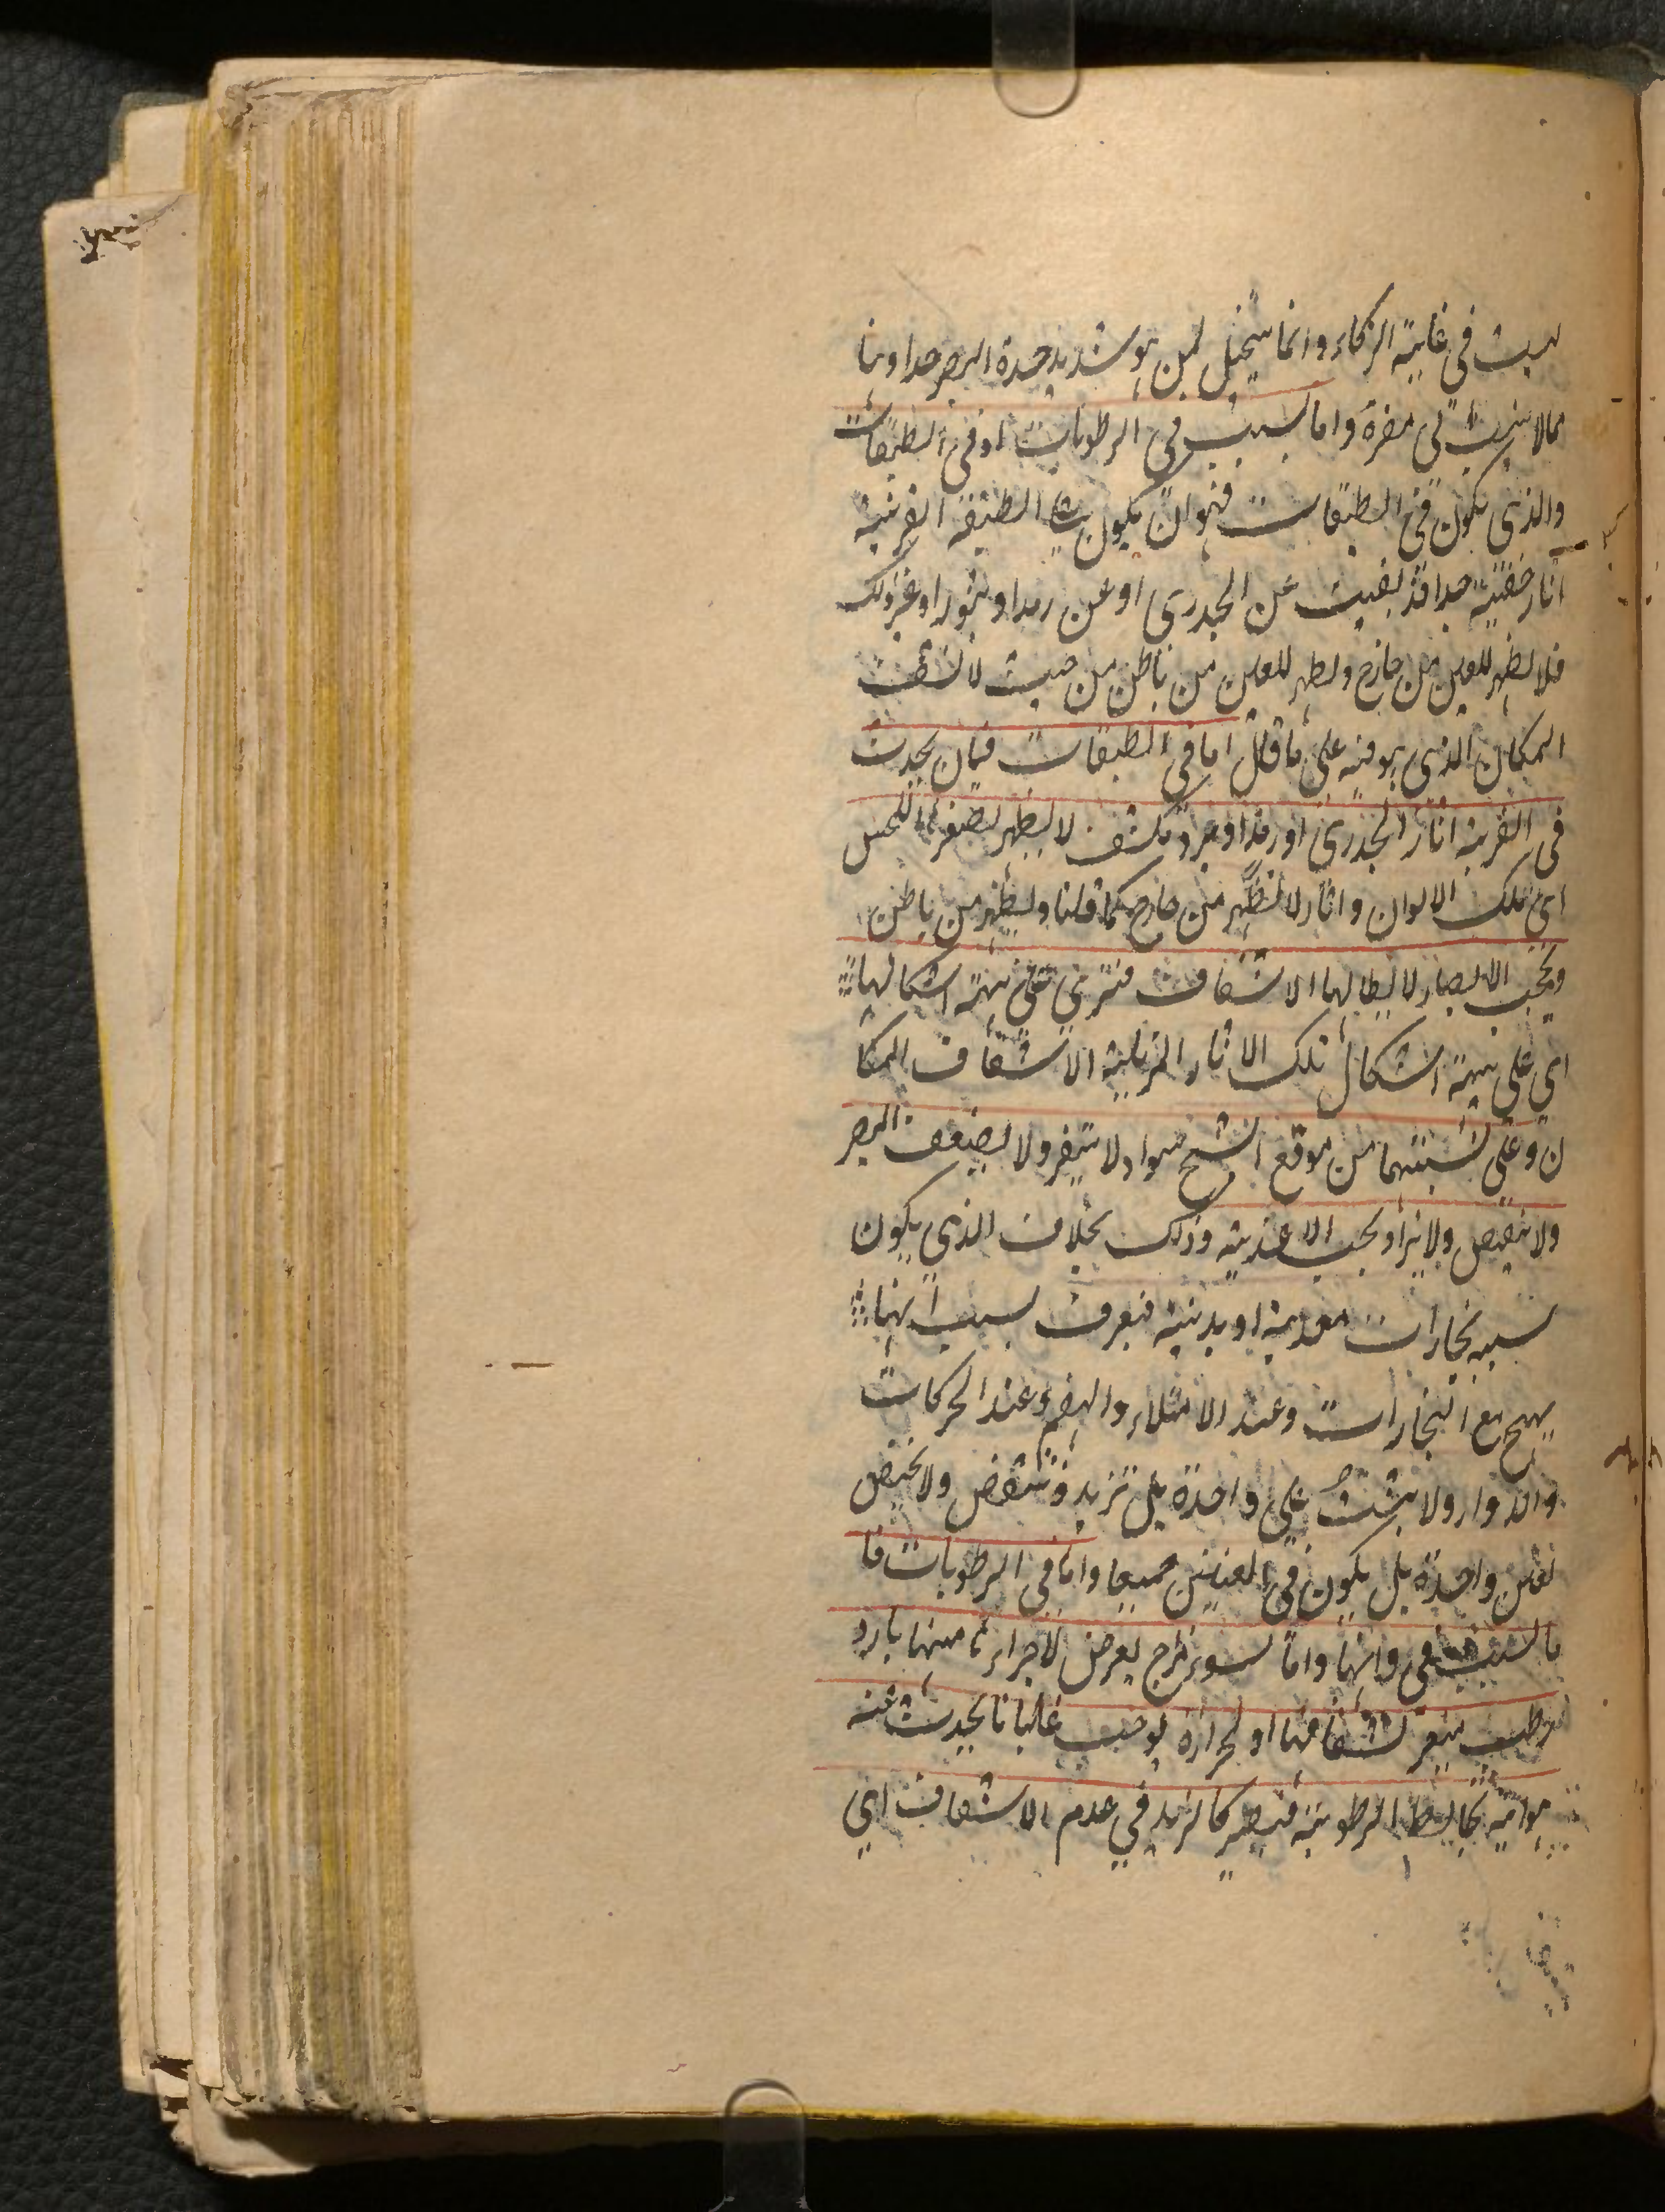 ليست في غاية الزكاء وانما يتخيل لمن هو شديد حدة البصر جدا وهذا
مما لا ينسب الى مضرة واما بسبب في الرطوبات او في الطبقات
والذي يكون في الطبقات فهو ان يكون على الطبقة القرنية
اثار خفية جدا قد بقيت عن الجدري او عن رمد او بثور او غير ذلك
فلا يظهر للعين من خارج ويظهر للعين من باطن من حيث لا يشف
المكان الذي هو فيه على ما قال اما في الطبقات فبان يحدث
في القرنية اثار الجدري او رمد او برد مكثف لا يظهر لصغرها للحس
اى تلك الالوان واثار لا تظهر من خارج كما قلنا ويظهر من باطن
ويحجب الابصار لابطالها الاشفاف فترى على هيئة اشكالها
اي على هيئة اشكال تلك الاثار المزيلة الاشفاف المكا
ن وعلى نسبتهما من موقع الشبح سواء ولا يتغير ولا يضعف البصر
ولا ينقص ولا يزاد بحسب الاغذية وذلك بخلاف الذي يكون
سببه بخارات معدية او بدنية فيعرف بسبب انها
يهيج مع البخارات وعند الامتلاء والهضم وعند الحركات
والدوار ولا يثبت على واحدة بل تزيد وتنقص ولا يختص
بعين واحدة بل يكون في العينين جميعا واما في الرطوبات فا
ما لسبب في ذاتها واما لسوء مزاج يعرض لاجزاء منها بارد
رطب يغير شفافها او لحرارة يوجب غليانا يحدث عنه
هوائية يخالط الرطوبة فيصير كالزبد في عدم الاشفاف اي